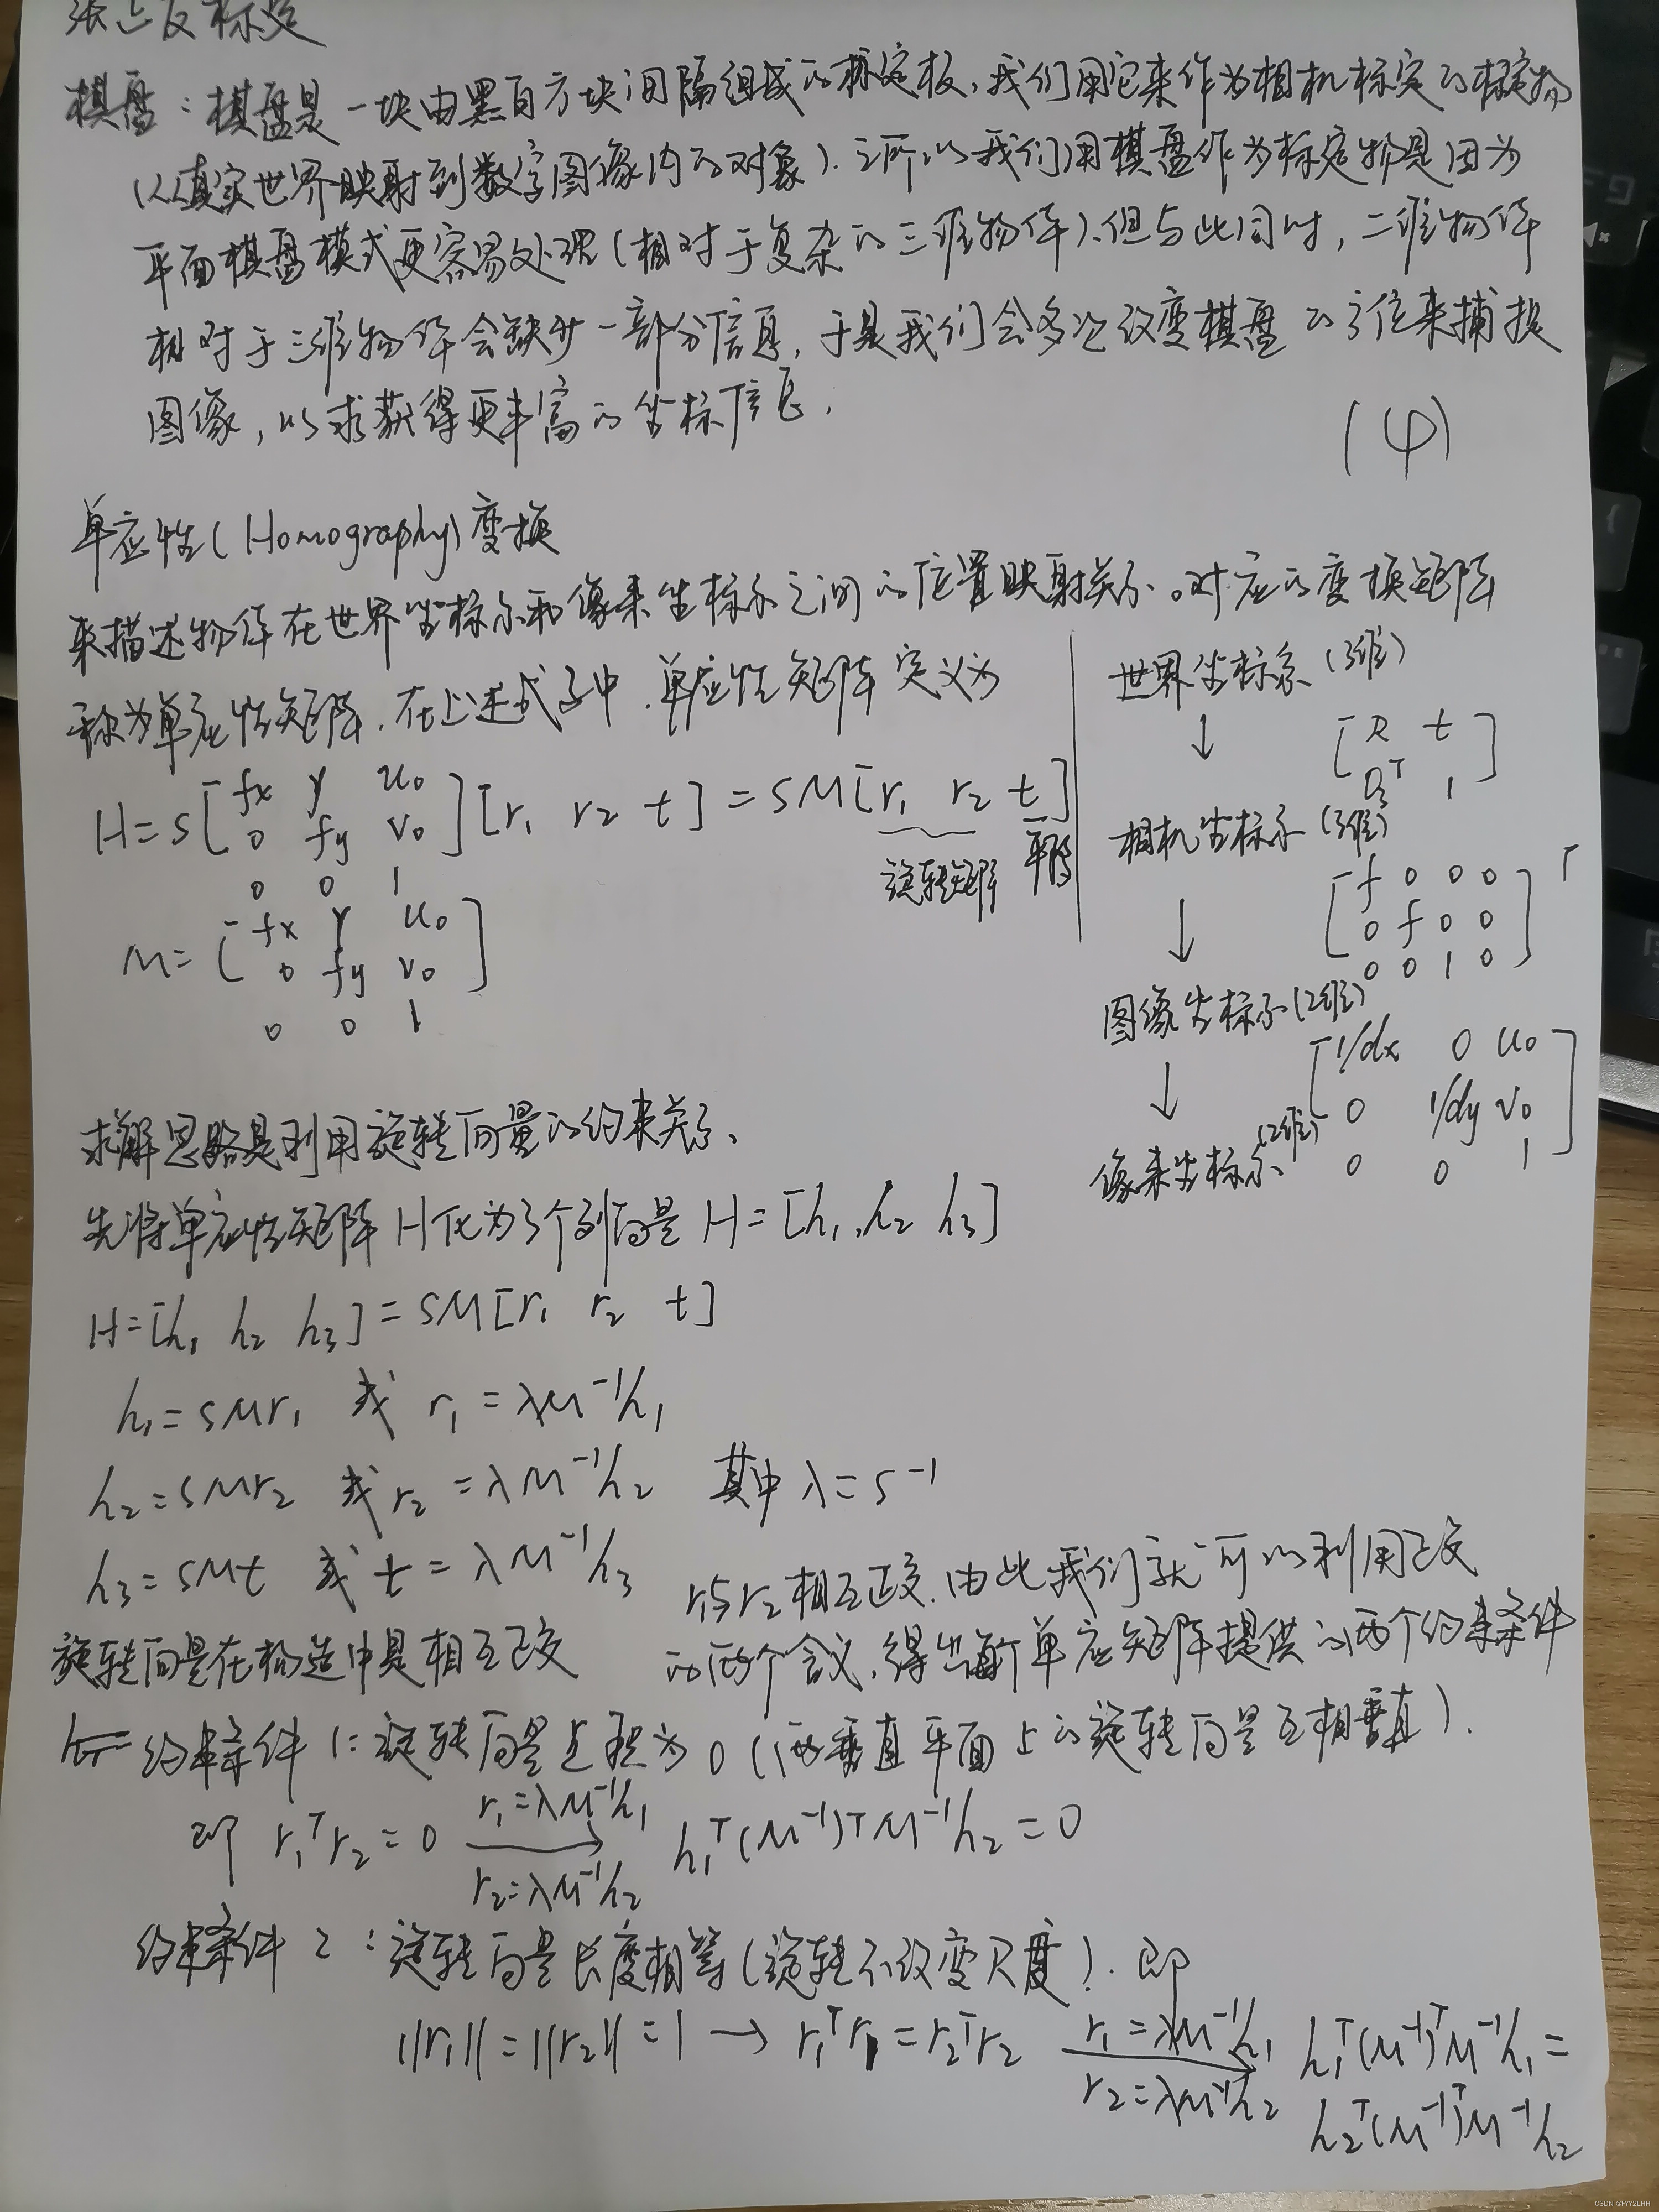 张正友标定
棋盘：棋盘是一块由黑白方块间隔组成的标定板,我们用它来作为相机标定的标定物
(从真实世界映射到数字图像内的对象).之所以我们用棋盘作为标定物是因为
平面棋盘模式更容易处理(相对于复杂的三维物件).但与此同时,二维物件
相对于三维物件会缺少一部分信息,于是我们会多次改变棋盘的方位来捕捉
图像,以求获得更丰富的坐标信息.
(4)
单应性(Homography)变换
来描述物件在世界坐标系和像素坐标系之间的位置映射关系。对应的变换矩阵
称为单应性矩阵.在上述式子中.单应性矩阵定义为
H=s[fx γ u0
0 fy v0
0 0 1][r1 r2 t]=sM[r1 r2 t]
旋转矩阵 平移
M=[fx γ u0
0 fy v0
0 0 1]
世界坐标系(3维)
↓ [R t
0₃ᵀ 1]
相机坐标系(3维)
↓ [f 0 0 0
0 f 0 0
0 0 1 0]
图像坐标系(2维)
↓ [1/dx 0 u0
0 1/dy v0
0 0 1]
像素坐标系(2维)
求解思路是利用旋转向量的约束关系、
先将单应性矩阵H化为3个列向量 H=[h1,h2 h3]
H=[h1 h2 h3]=sM[r1 r2 t]
h1=sMr1 或 r1=λM⁻¹h1
h2=sMr2 或 r2=λM⁻¹h2 其中λ=s⁻¹
h3=sMt 或 t=λM⁻¹h3
旋转向量在构造中是相互正交
r1与r2相互正交.由此我们就可以利用正交
的两个含义,得出每个单应矩阵提供的两个约束条件
约束条件1:旋转向量点积为0(两垂直平面上的旋转向量互相垂直).
即 r1ᵀr2=0 r1=λM⁻¹h1 → r2=λM⁻¹h2 h1ᵀ(M⁻¹)ᵀM⁻¹h2=0
约束条件2:旋转向量长度相等(旋转不改变尺度).即
||r1||=||r2||=1 → r1ᵀr1=r2ᵀr2 r1=λM⁻¹h1 → r2=λM⁻¹h2 h1ᵀ(M⁻¹)ᵀM⁻¹h1=
h2ᵀ(M⁻¹)ᵀM⁻¹h2
CSDN @FYY2LHH